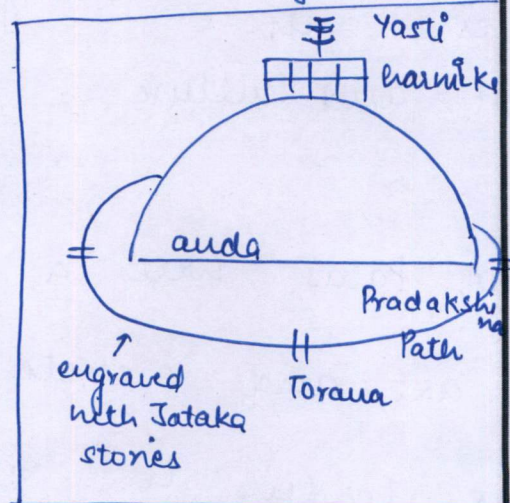 Yasti
harmika
anda
Pradakshi
na
Path
Torana
engraved
with Jataka
stories